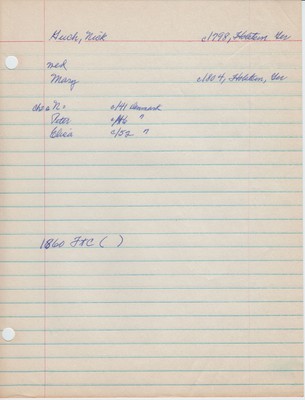 Guch, Nick c1798, Holstein, Ger
med
Mary c1804, Holstein, Ger
ch: a N. c/41 Denmark
Peter c/46 "
Elsia c/52 "
1860 F+C ( )